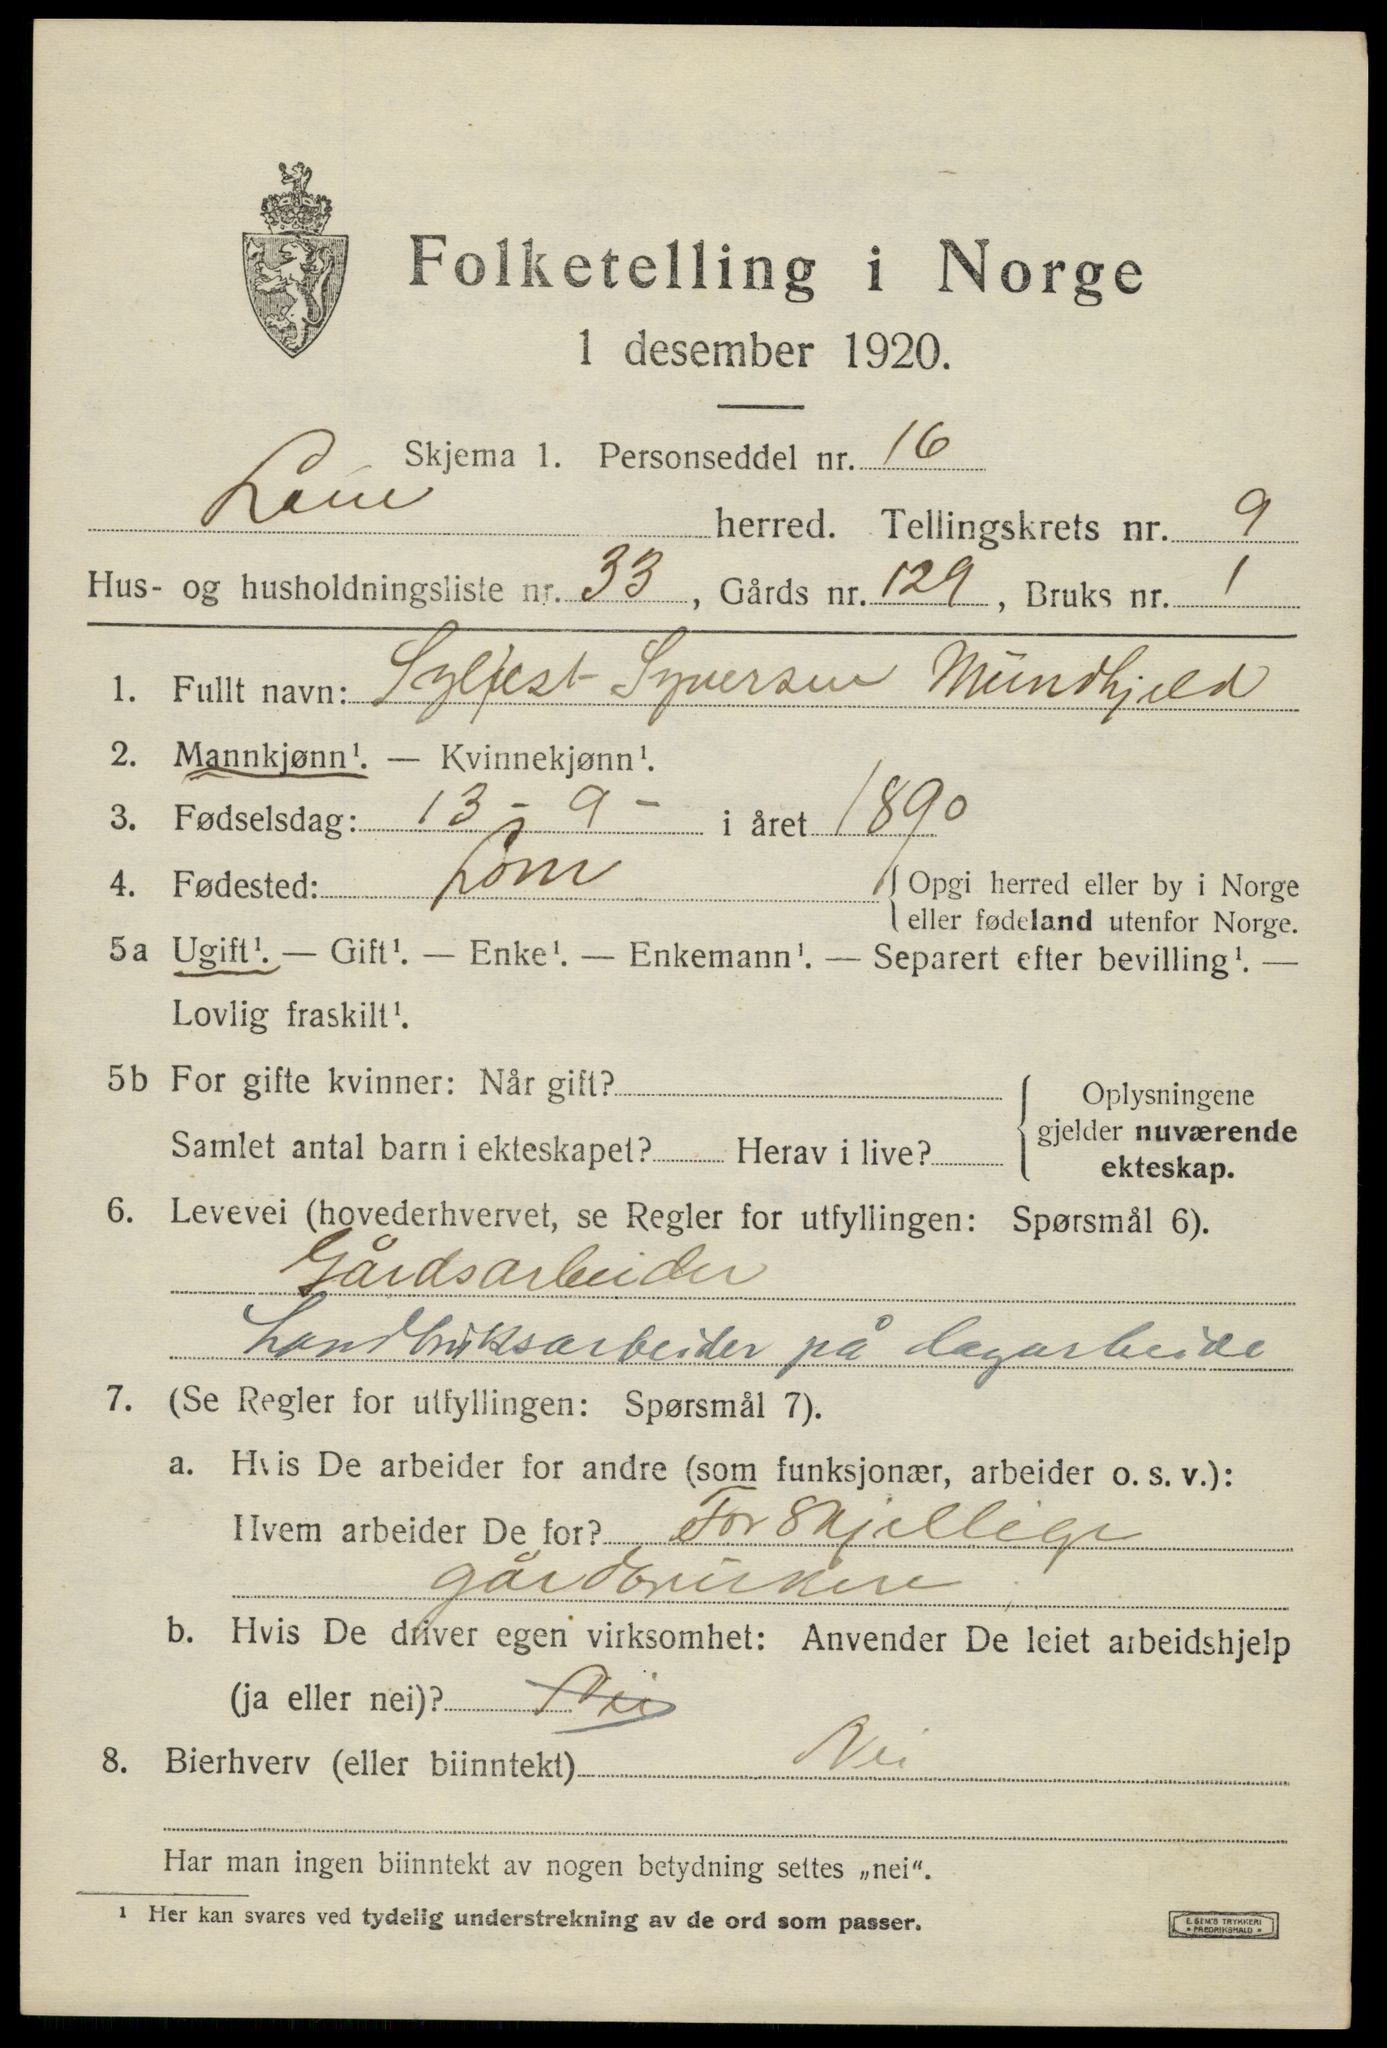 Folketelling i Norge
1 desember 1920.
Skjema 1. Personseddel nr. 16
Lom herred. Tellingskrets nr. 9
Hus- og husholdningsliste nr. 33, Gårds nr. 129, Bruks nr. 1
1. Fullt navn: Sylfest Syversen Mundhjeld
2. Mannkjønn¹. — Kvinnekjønn¹.
3. Fødselsdag: 13 - 9 - i året 1890
4. Fødested: Lom { Opgi herred eller by i Norge
eller fødeland utenfor Norge.
5a Ugift¹. — Gift¹. — Enke¹. — Enkemann¹. — Separert efter bevilling¹. —
Lovlig fraskilt¹.
5b For gifte kvinner: Når gift?
Samlet antal barn i ekteskapet? Herav i live?
{ Oplysningene
gjelder nuværende
ekteskap.
6. Levevei (hovederhvervet, se Regler for utfyllingen: Spørsmål 6).
Gårdsarbeider
Landbruksarbeider på dagarbeide
7. (Se Regler for utfyllingen: Spørsmål 7).
a. Hvis De arbeider for andre (som funksjonær, arbeider o. s. v.):
Hvem arbeider De for? Forskjellige
gårdbrukere
b. Hvis De driver egen virksomhet: Anvender De leiet arbeidshjelp
(ja eller nei)? Nei
8. Bierhverv (eller biinntekt) Nei
Har man ingen biinntekt av nogen betydning settes „nei“.
¹ Her kan svares ved tydelig understrekning av de ord som passer.
E. SEM'S TRYKKERI
• FREDRIKSHALD •